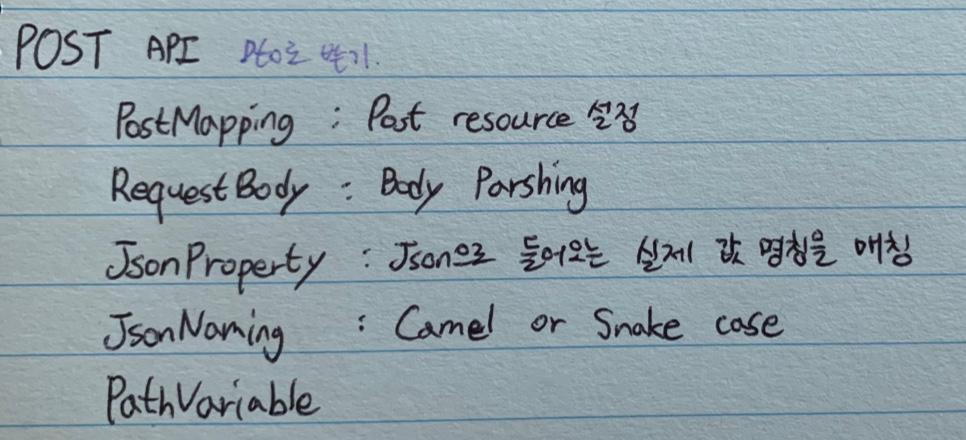 POST API Dto로 받기.
PostMapping : Post resource 설정
RequestBody : Body Parshing
JsonProperty : Json으로 들어오는 실제 값 명칭을 매칭
JsonNaming : Camel or Snake case
PathVariable